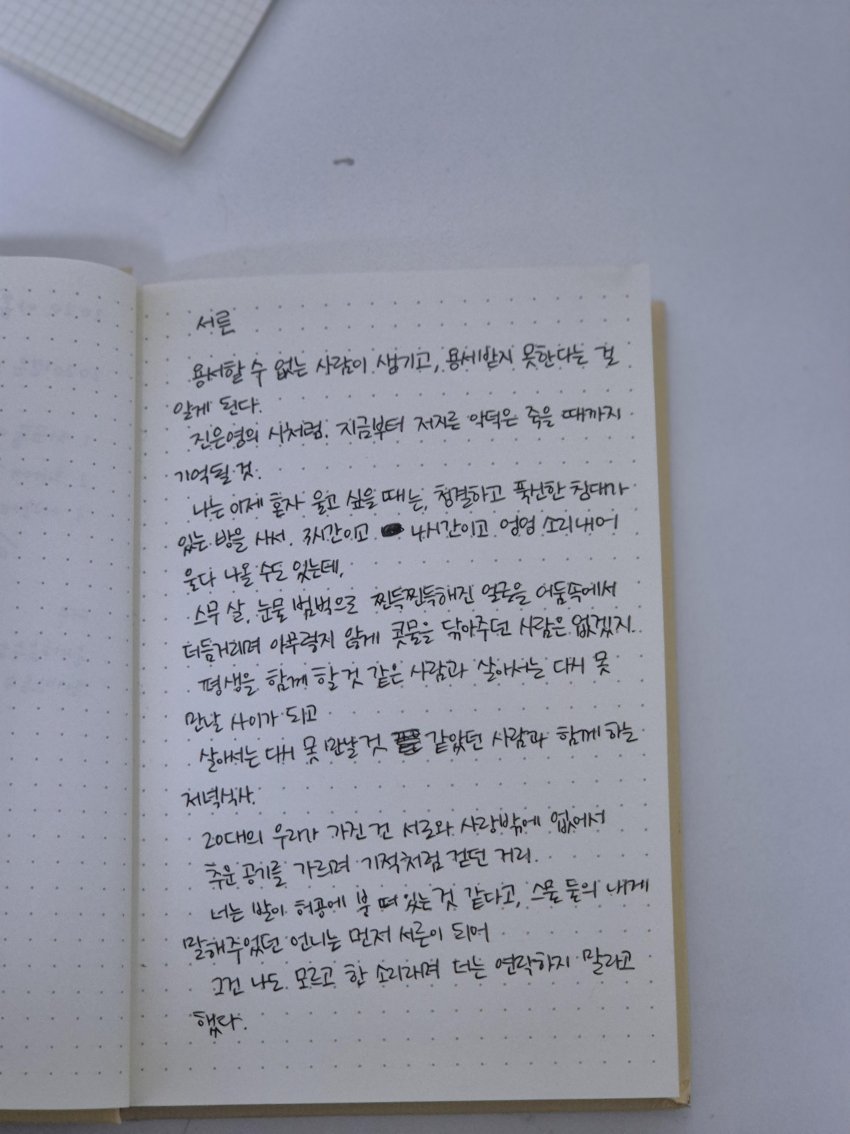 서른
용서할 수 없는 사람이 생기고, 용서받지 못한다는 걸
알게 된다.
진은영의 시처럼. 지금부터 저지른 악덕은 죽을 때까지
기억될 것.
나는 이제 혼자 울고 싶을 때는, 청결하고 푹신한 침대가
있는 방을 사서. 3시간이고 4시간이고 엉엉 소리내어
울다 나올 수도 있는데,
스무 살, 눈물 범벅으로 찐득찐득해진 얼굴을 어둠속에서
더듬거리며 아무렇지 않게 콧물을 닦아주던 사람은 없겠지.
평생을 함께 할 것 같은 사람과 살아서는 다시 못
만날 사이가 되고
살아서는 다시 못 만날 것 같았던 사람과 함께 하는
저녁식사.
20대의 우리가 가진 건 서로와 사랑밖에 없어서
추운 공기를 가르며 기적처럼 걷던 거리.
너는 발이 허공에 붕 떠 있는 것 같다고, 스물 둘의 내게
말해주었던 언니는 먼저 서른이 되어
그건 나도 모르고 한 소리라며 더는 연락하지 말라고
했다.